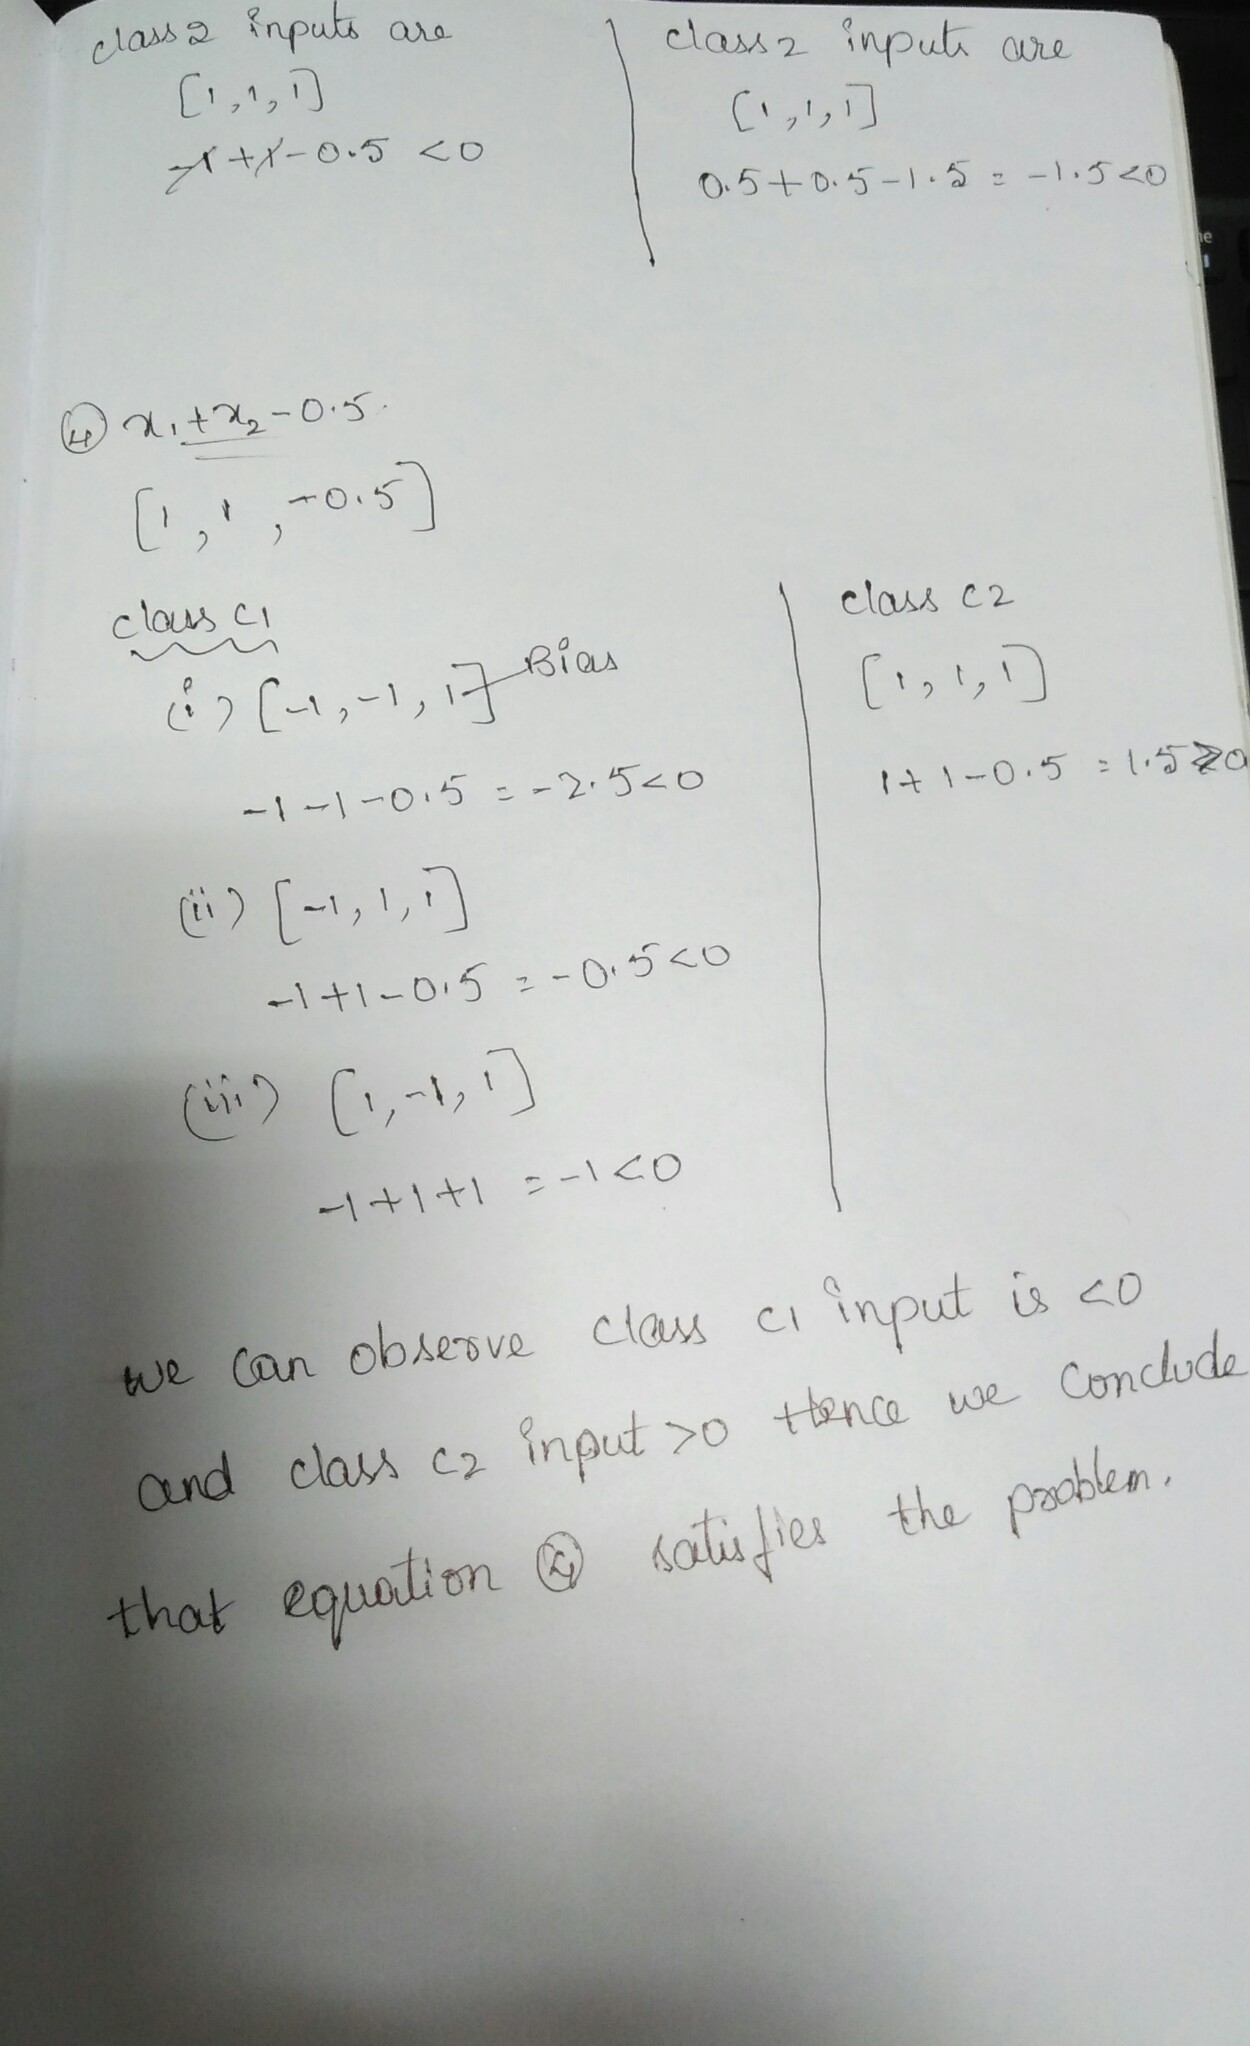 class 2 inputs are
[1, 1, 1]
-1+1-0.5 <0
class 2 inputs are
[1, 1, 1]
0.5+0.5-1.5 = -1.5<0
④ x₁+x₂-0.5.
[1, 1, -0.5]
class c1
(i) [-1, -1, 1] Bias
-1-1-0.5 = -2.5<0
(ii) [-1, 1, 1]
-1+1-0.5 = -0.5<0
(iii) [1, -1, 1]
-1+1+1 = -1<0
class c2
[1, 1, 1]
1+1-0.5 = 1.5>0
we can observe class c1 input is <0
and class c2 input >0 Hence we conclude
that equation ④ satisfies the problem.